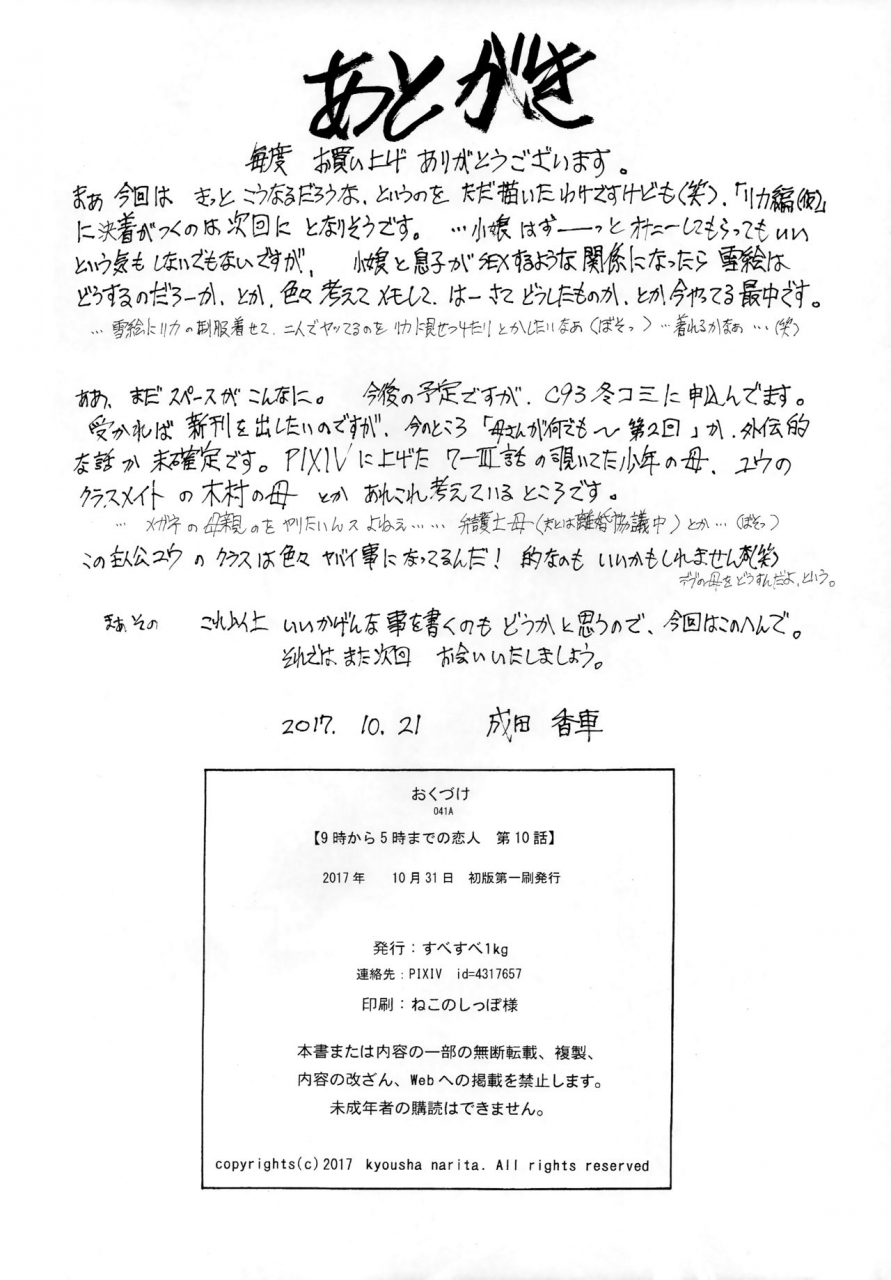 あとがき
毎度 お買い上げ ありがとうございます。
まぁ 今回は きっと こうなるだろうな、というのを ただ描いたわけですけども(笑)、「リカ編(仮)」
に決着がつくのは次回に となりそうです。 …小娘はずーーっとオナニーしてもらってもいい
という気もしないでもないですが、 小娘と息子がSEXするような関係になったら 雪絵は
どうするのだろーか、とか、色々考えてメモして、はーさてどうしたものか、とか今やってる最中です。
…雪絵にリカの制服着せて、二人でヤッてるのを リカに見せつけたり とかしたいなあ(ぼそっ) …着れるかなぁ…(笑)
ああ、まだスペースが こんなに。 今後の予定ですが、C93冬コミに申込んでます。
受かれば 新刊を出したいのですが、今のところ「母さんが何でも〜 第2回」か、外伝的
な話か 未確定です。PIXIVに上げた 7ーⅢ話の覗いてた少年の母、ユウの
クラスメイトの木村の母 とか あれこれ考えているところです。
… メガネの母親のを やりたいんスよねえ…… 弁護士母(夫とは離婚協議中)とか…(ぼそっ)
この主人公ユウの クラスは色々 ヤバイ事になってるんだ! 的なのも いいかもしれませんが(笑)
デブの母をどうすんだよ、という。
まぁその これ以上 いいかげんな事を書くのも どうかと思うので、今回はこのへんで。
それでは また次回 お会いいたしましょう。
2017. 10. 21 成田 香車
おくづけ
041A
【9時から5時までの恋人 第10話】
2017年 10月31日 初版第一刷発行
発行：すべすべ1kg
連絡先：PIXIV id=4317657
印刷：ねこのしっぽ様
本書または内容の一部の無断転載、複製、
内容の改ざん、Webへの掲載を禁止します。
未成年者の購読はできません。
copyrights(c)2017 kyousha narita. All rights reserved